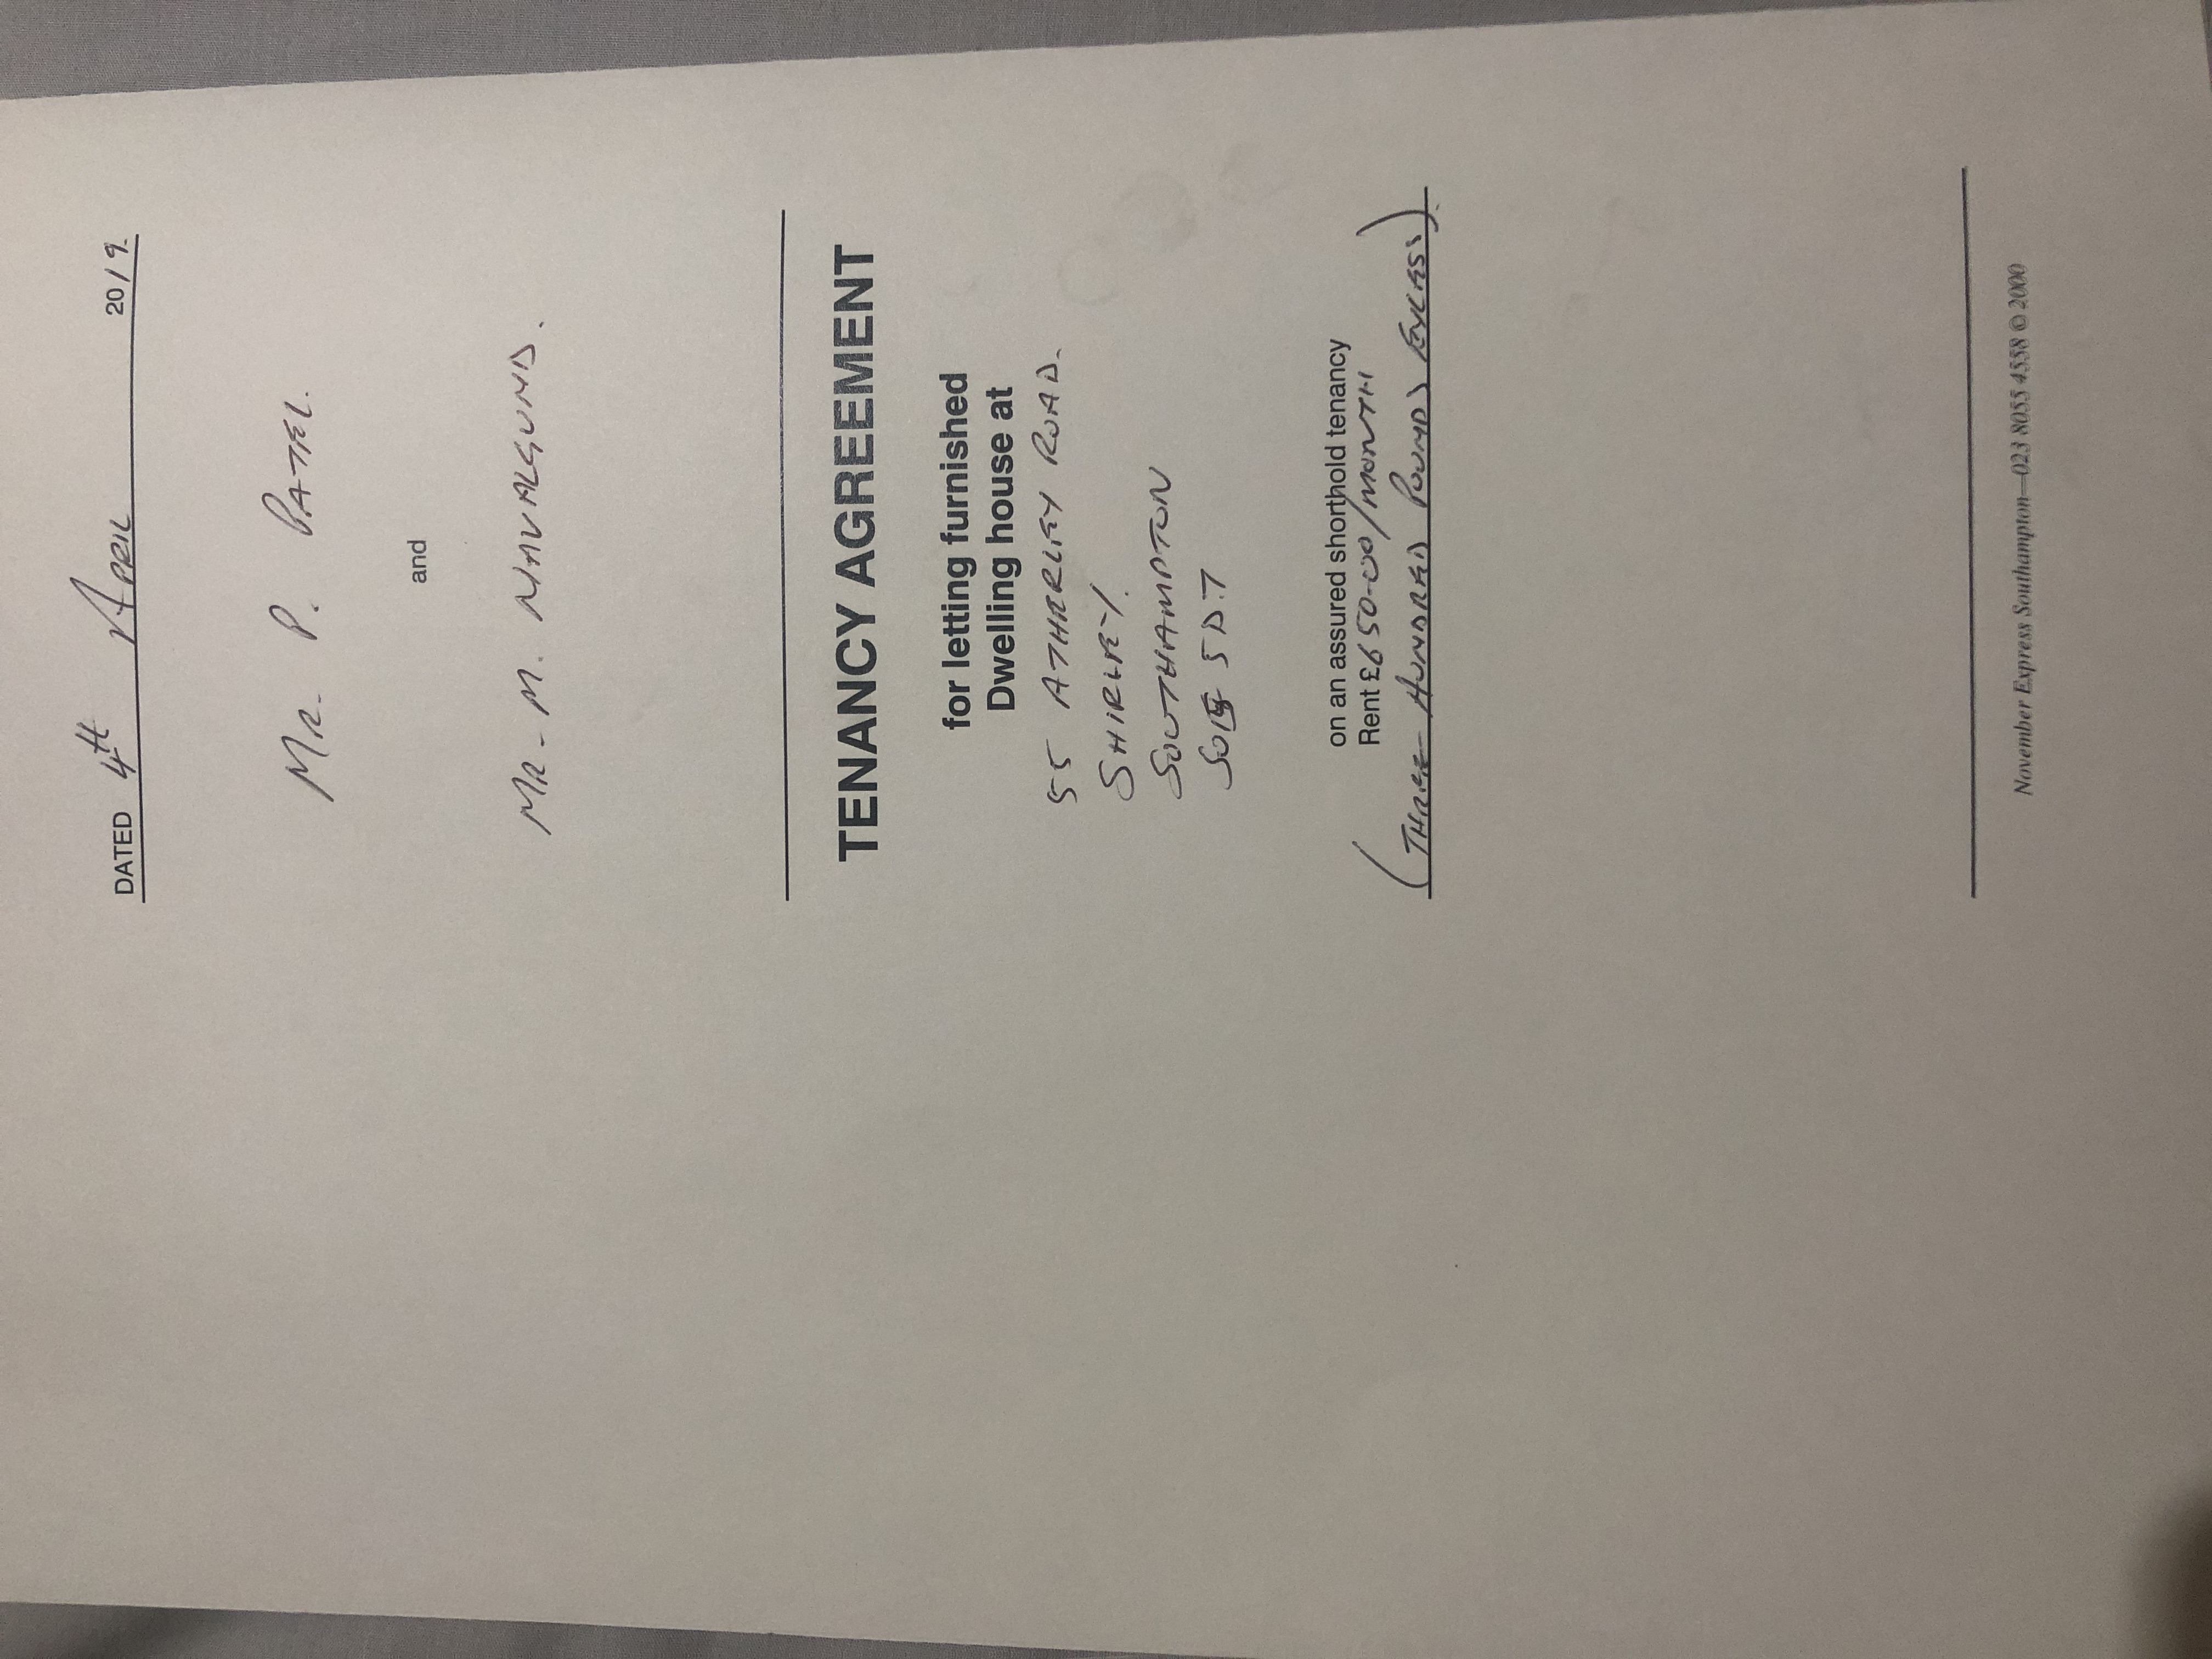 DATED 4TH APRIL 2019.
MR. P. PATEL.
and
MR. M. NAVALGUND.
TENANCY AGREEMENT
for letting furnished
Dwelling house at
55 ATHERLEY ROAD.
SHIRLEY.
SOUTHAMPTON
SO15 5DT
on an assured shorthold tenancy
Rent £650-00/MONTH
(THREE HUNDRED POUNDS EXCESS).
November Express Southampton—023 8055 4558 © 2000